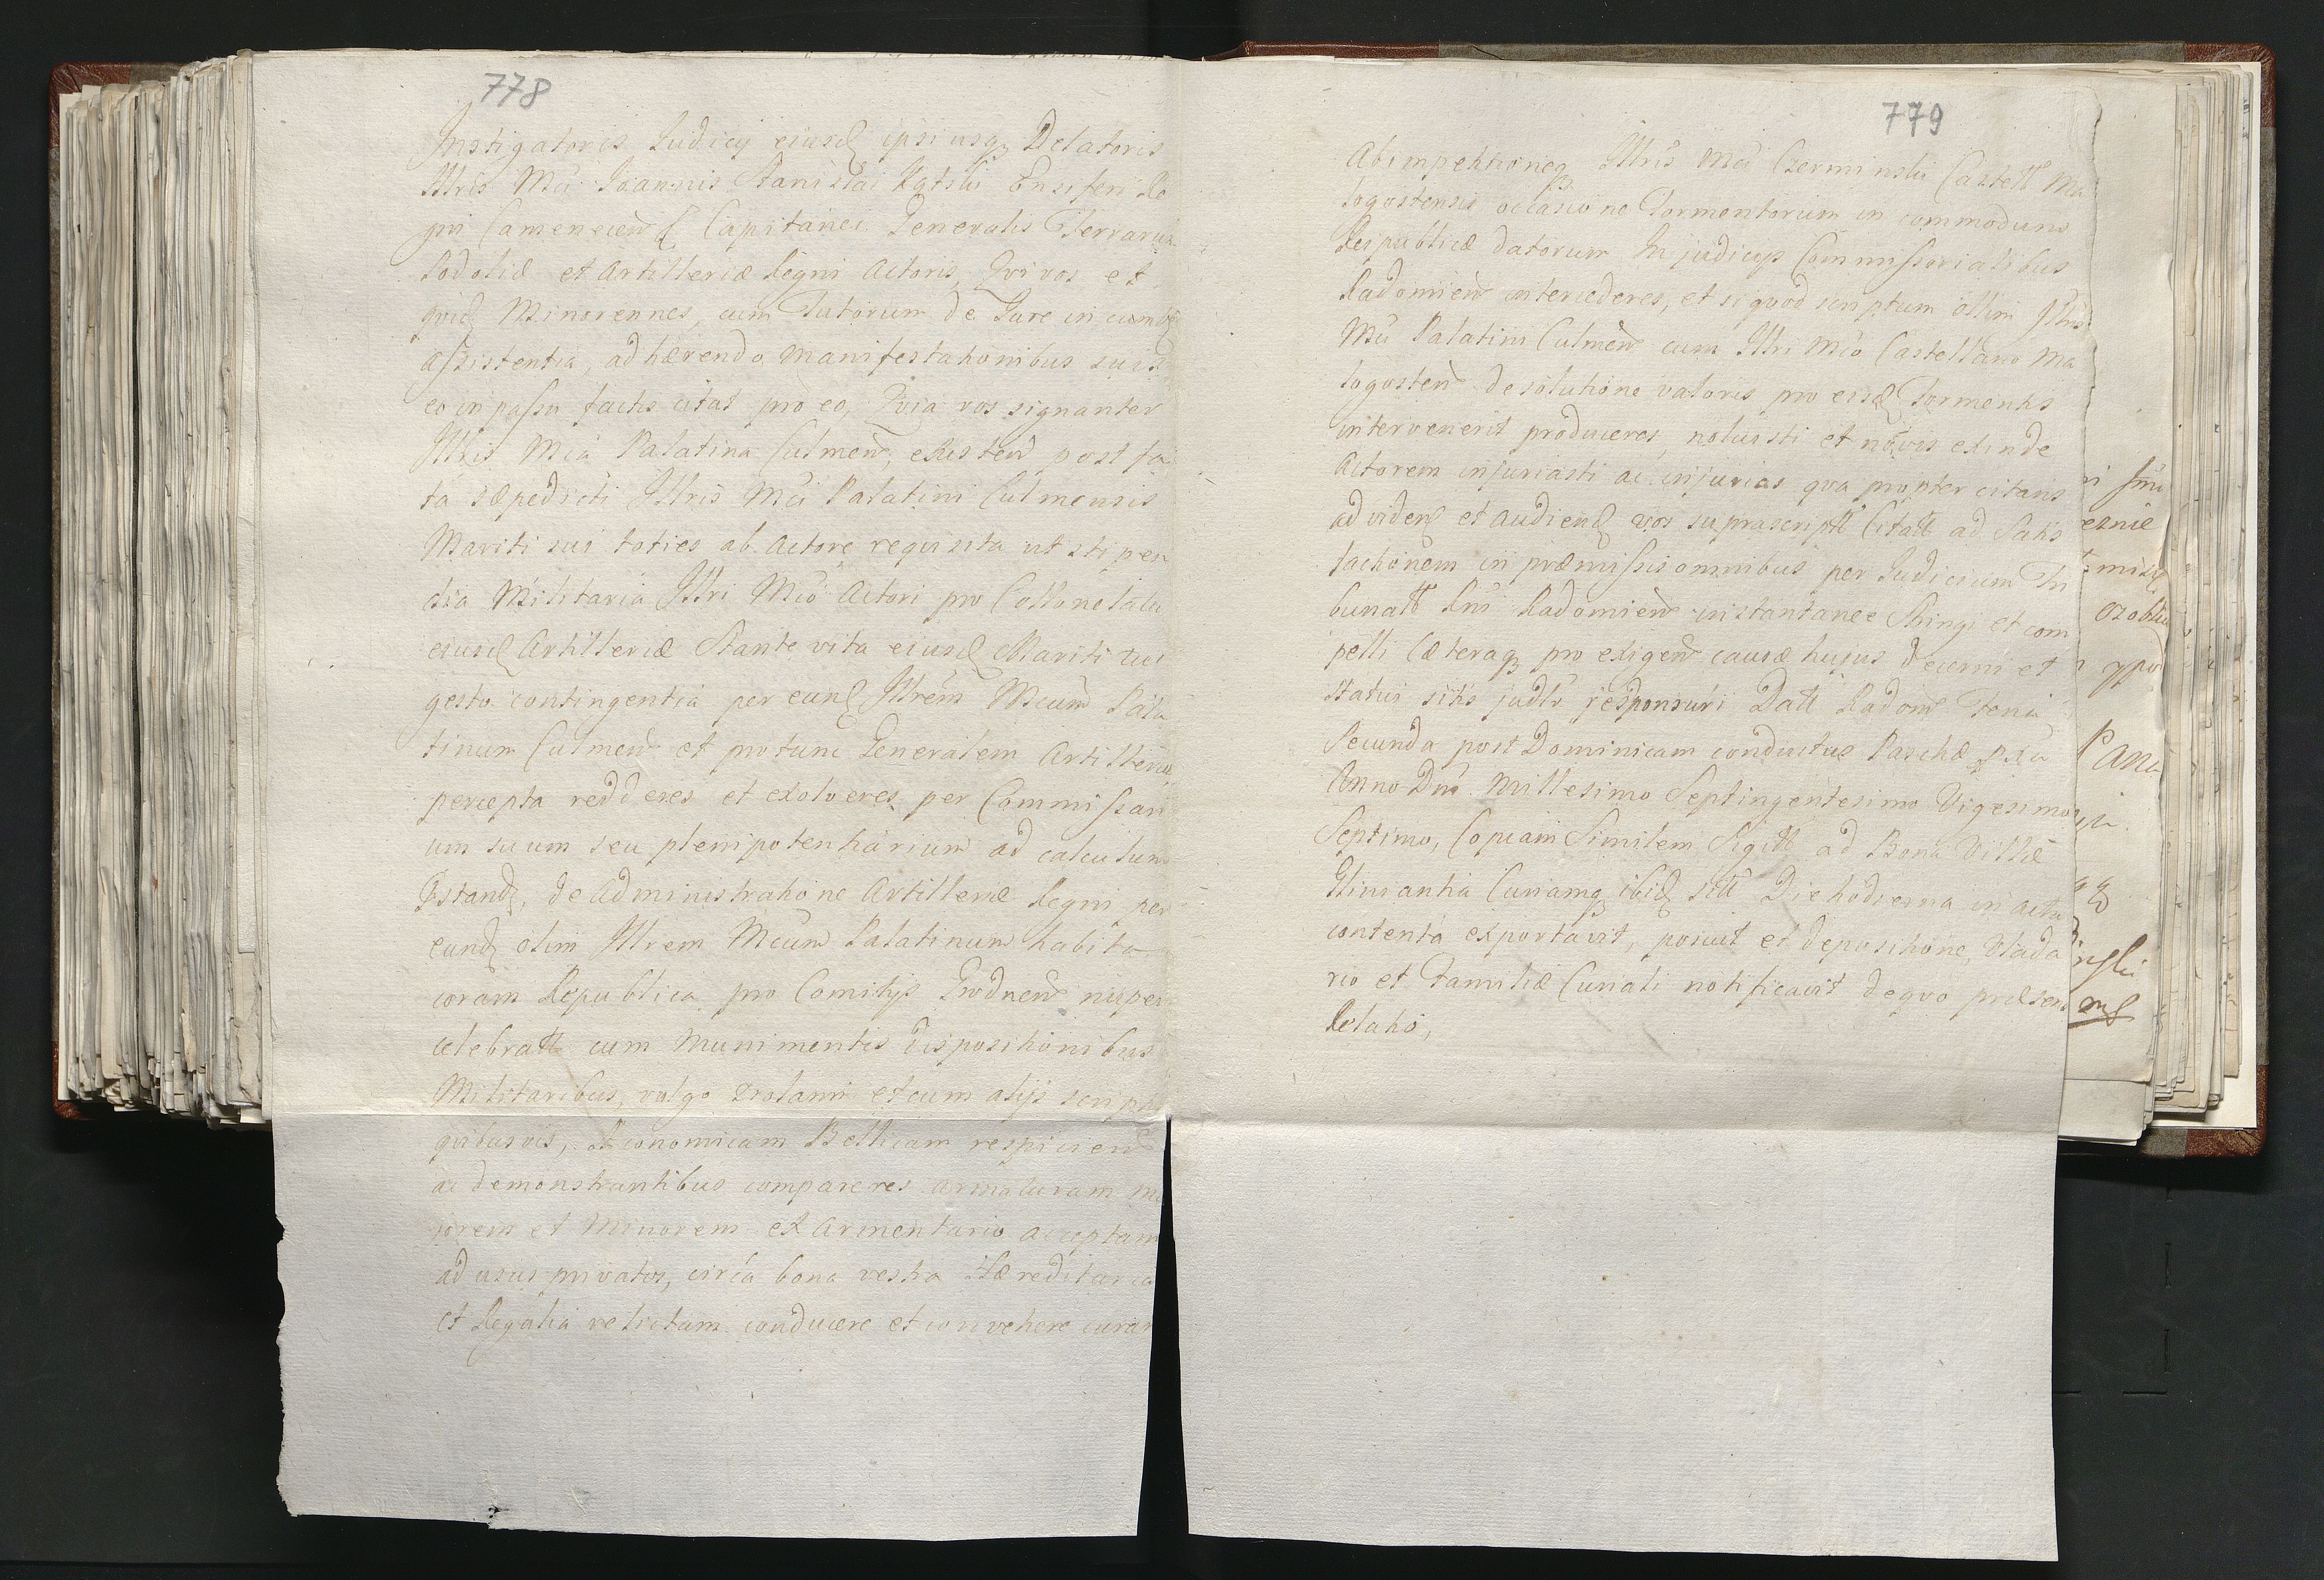 778
Instigatoris Judicij eiusd ipsiusq Delatoris
Illris Mci Joannis Stanislai Kątski Ensiferi Re
gni Camenecen Capitanei Generalis Terrarum
Podoliæ et Artilleriæ Regni Actoris, Qvi vos et
qvid Minorennes, cum Tutorum de Jure incumb
assistentia, adhærendo manifestationibus suis
eo in passu factis citat pro eo, Qvia vos signanter
Illris Mca Palatina Culmen, existen post fa
ta sæpedicti Illris Mci Palatini Culmensis
Mariti sui toties ab Actore requisita ut stipen
dia Militaria Illri Mco Actori pro Collonelatu
eiusd Artilleriæ Stante vita eiusd Mariti tui
gesto contingentia per eund Illrem Mcum Pala
tinum Culmen et protunc Generalem Artilleriæ
percepta redderes et exolveres per Commissari
um suum seu plenipotentiarium ad calculum
stand, de Administratione Artilleriæ Regni per
eund olim Illrem Mcum Palatinum habita
coram Republica pro Comitijs Grodnen nuper
celebratt cum Munimentis dispositionibus
Militaribus, vulgo et cum alijs scrip
qvibusvis, Œconomicam Bellicam respicien
ac demonstrantibus compareres armaturam ma
iorem et Minorem ex Armentario acceptam
ad usus privatos, circa bona vestra Hæreditaria
et Regalia relictam conducere et convehere curar
779
Abimpetitioneq Illris Mci Czerminski Castell Ma
logostensis occasione Tormentorum in commodum
Reipublicæ datorum In judicijs Commissorialibus
Radomien intercederes, et siqvod scriptum ollim Illris
Mci Palatini Culmen cum Illri Mco Castellano Ma
logosten de solutione valoris pro eisd Tormentis
intervenerit produceres, noluisti et non vis exinde
Actorem injuriasti ac injurias qva propter citans
ad viden et audien vos suprascript Citatt ad Satis
factionem in præmissis omnibus per Judicium Tri
bunalt Rni Radomien instantanee Stringi et com
pelli Cæteraq pro exigen causæ hujus decerni et
statui sitis judlr responsuri Datt Radom feria
Secunda post Dominicam conductus Paschæ pxa
Anno Dni Millesimo Septingentesimo Vigesimo
Septimo, Copiam Similem Sigill ad Bona Villæ
Curiamq ibid sitt Die hodierna in actu
contenta exportavit, posuit et depositione, Vlada
rio et Familiæ Curiali notificavit deqvo præsen
Relatio,